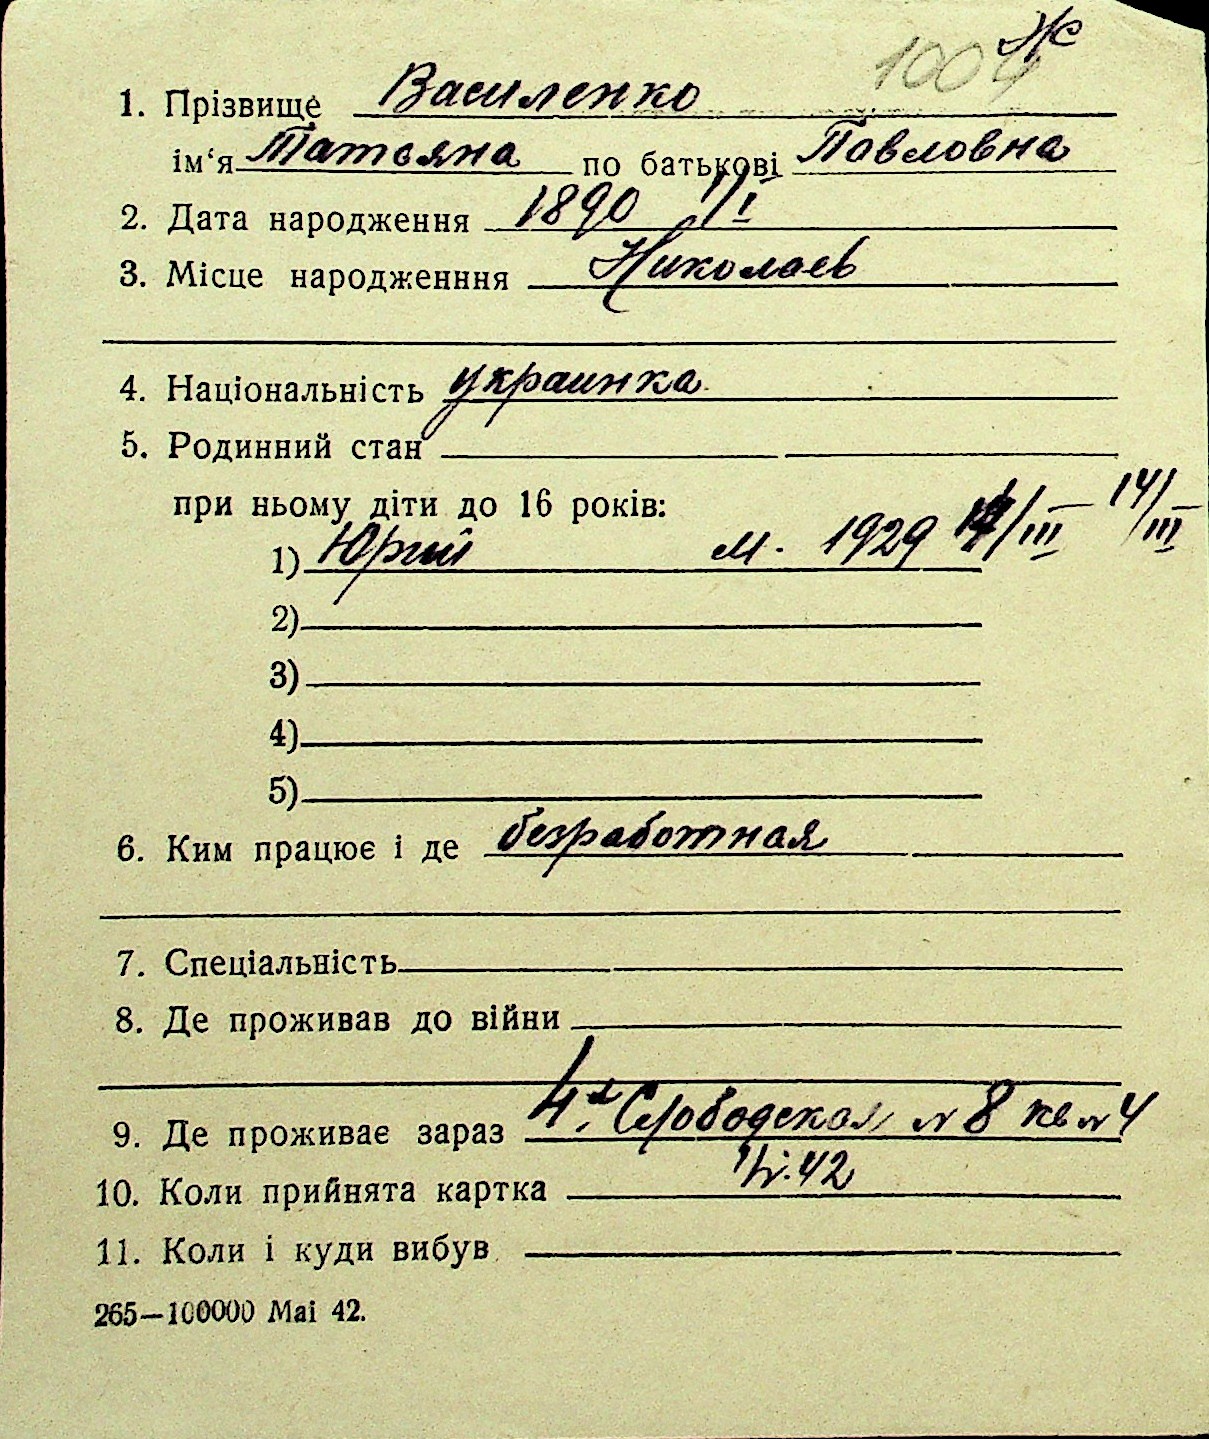 1004 Ж
1. Прізвище Василенко
ім‘я Татьяна по батькові Павловна
2. Дата народження 1890 1/I
3. Місце народженння Николаев
4. Національність украинка
5. Родинний стан
при ньому діти до 16 років:
1) Юрий м. 1929 14/III 14/III
2)
3)
4)
5)
6. Ким працює і де безработная
7. Спеціальність
8. Де проживав до війни
9. Де проживає зараз 4я Слободская № 8 кв № 4
10. Коли прийнята картка 42
11. Коли і куди вибув
265—100000 Mai 42.